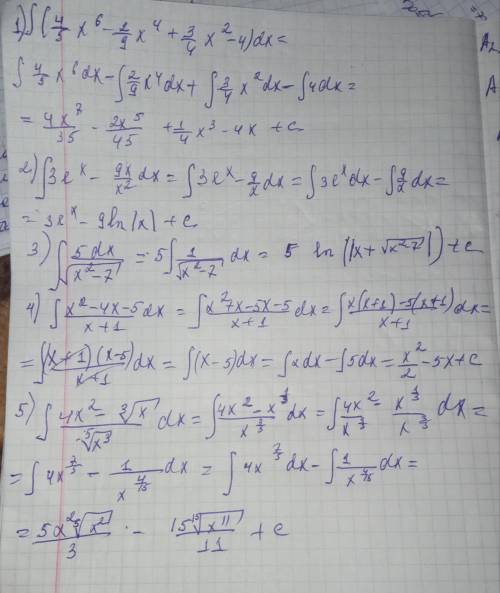 1) ∫(4/5 x^6 - 2/9 x^4 + 3/4 x^2 - 4)dx =
∫ 4/5 x^6 dx - ∫ 2/9 x^4 dx + ∫ 3/4 x^2 dx - ∫ 4dx =
= 4x^7/35 - 2x^5/45 + 1/4 x^3 - 4x + c
2) ∫ 3e^x - 9x/x^2 dx = ∫ 3e^x - 9/x dx = ∫ 3e^x dx - ∫ 9/x dx =
= 3e^x - 9 ln|x| + c
3) ∫ 5dx/√(x^2-7) = 5 ∫ 1/√(x^2-7) dx = 5 ln(|x + √(x^2-7)|) + c
4) ∫ (x^2-4x-5)/(x+1) dx = ∫ (x^2+x-5x-5)/(x+1) dx = ∫ (x(x+1)-5(x+1))/(x+1) dx =
= ∫ (x+1)(x-5)/(x+1) dx = ∫ (x-5)dx = ∫ xdx - ∫ 5dx = x^2/2 - 5x + c
5) ∫ (4x^2 - ∛x)/⁵√(x^3) dx = ∫ (4x^2 - x^(1/3))/x^(3/5) dx = ∫ 4x^2/x^(3/5) - x^(1/3)/x^(3/5) dx =
= ∫ 4x^(7/5) - 1/x^(4/15) dx = ∫ 4x^(7/5) dx - ∫ 1/x^(4/15) dx =
= 5x^2 ⁵√(x^2)/3 - 15 ¹⁵√(x^11)/11 + c